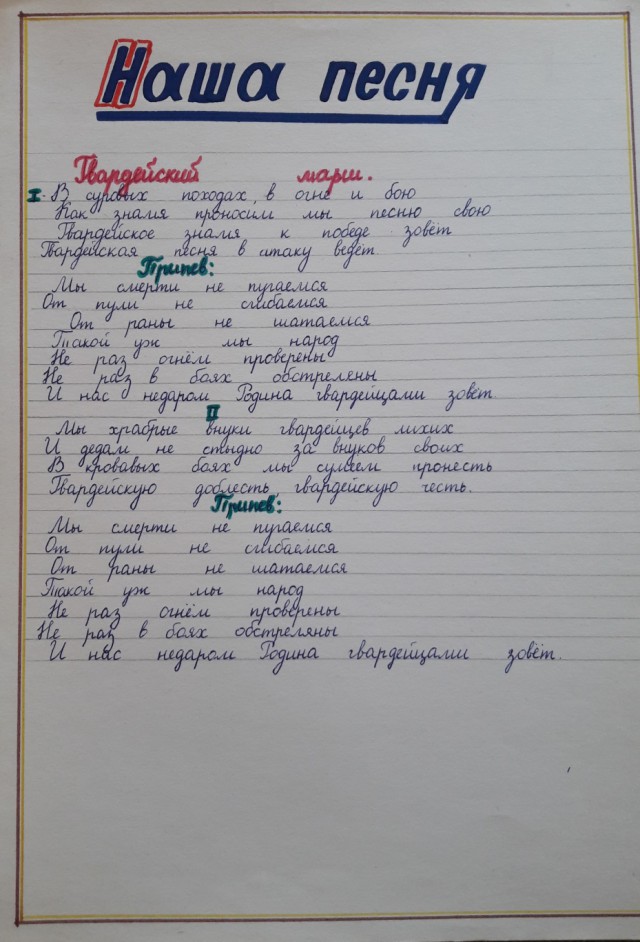 Наша песня
Гвардейский марш.
I. В суровых походах, в огне и бою
Как знамя проносим мы песню свою
Гвардейское знамя к победе зовёт
Гвардейская песня в атаку ведёт.
Припев:
Мы смерти не пугаемся
От пули не сгибаемся
От раны не шатаемся
Такой уж мы народ
Не раз огнём проверены
Не раз в боях обстреляны
И нас недаром Родина гвардейцами зовёт.
II
Мы храбрые внуки гвардейцев лихих
И дедам не стыдно за внуков своих
В кровавых боях мы сумеем пронесть
Гвардейскую доблесть, гвардейскую честь.
Припев:
Мы смерти не пугаемся
От пули не сгибаемся
От раны не шатаемся
Такой уж мы народ
Не раз огнём проверены
Не раз в боях обстреляны
И нас недаром Родина гвардейцами зовёт.